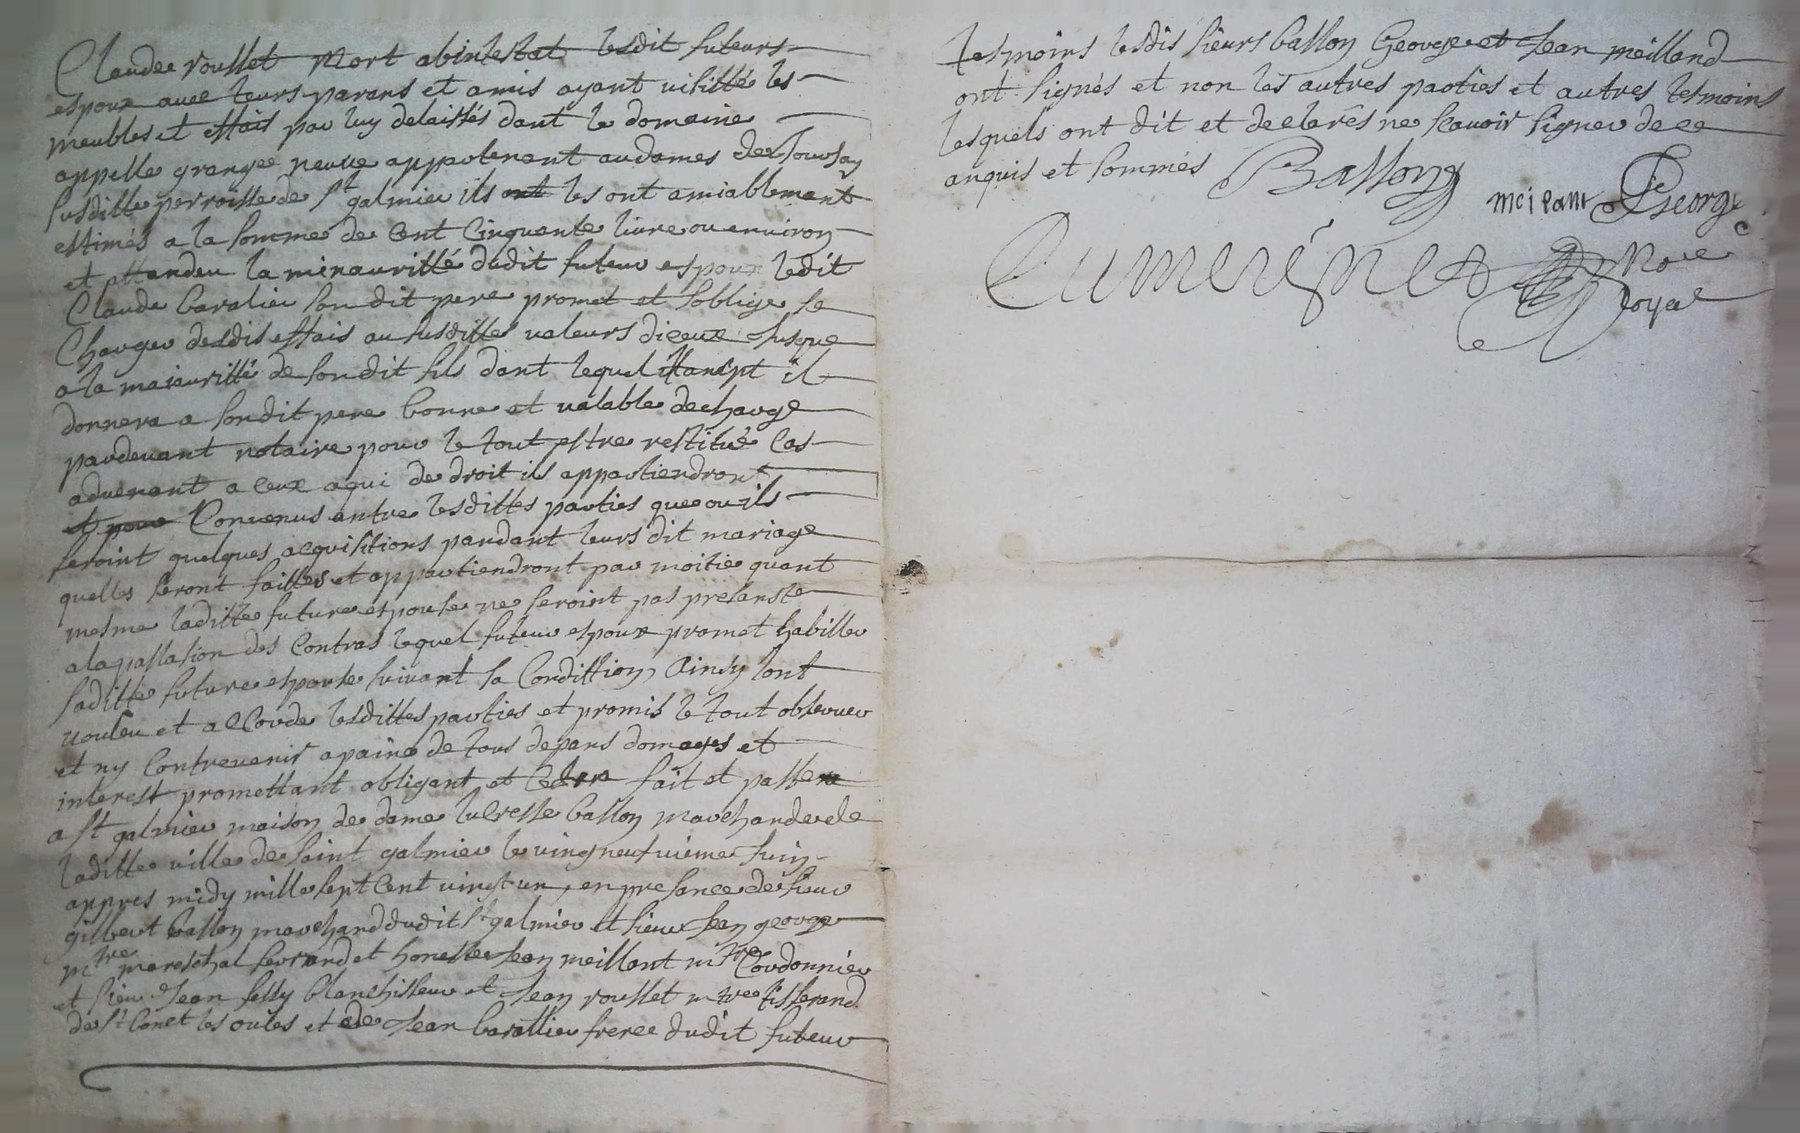 Claude rousset mort abintestat lesdit futeurs
espoux avec leurs parans et amis ayant visitté les
meubles et effais par luy delaissés dant le domaine
appelle grange neuve appartenant au dames de Joursay
susditte perroisse de St galmier ils ont les ont amiablement
estimés a la somme de cent cinquante livre ou environ
et attandeu la minauritté dudit futeur espoux ledit
Claude baralier son dit pere promet et soblige se
charger desdis effais au susdittes valeurs diceux Jusque
a la majauritté de son dit fils dant lequel ittanspt il
donnera a son dit pere bonne et valable decharge
pardevant notaire pour le tout estre restitué Cas
advenant a ceux a qui de droit ils appartiendront
et pour Convenus antre lesdittes parties que ou ils
feroint quelques acquisitions pandant leurs dit mariage
quelles seront faittes et appartiendront par moitie quant
mesme laditte future espouse ne seroint pas presanste
a la passasion des contras lequel futeur espoux promet habiller
saditte future espouse suivant sa Condittion Ainsy lont
vouleu et accorde lesdittes parties et promis le tout observer
et ny contrevenir a paine de tous depans domages et
interest promettant obligant et fait et passe
a St galmier maison de dame lucresse basson marchande de
laditte ville de saint galmier le vingneufvieme Juin
appres midy mille sept cent vingt un, en presance de sieur
gilbert basson marchand dudit St galmier et sieur Jean george
mtre mareschal ferrand et honeste Jean meillant mtre Cordonnier
et sieur Jean blanchisseur et Jean rousset mtre tisserand
de St bonet les oules et de Jean barallier frere dudit futeur
tesmoins lesdis sieurs basson George et Jean meilland
ont signés et non les autres parties et autres tesmoins
lesquels ont dit et declarés ne scavoir signer de ce
anquis et sommés Basson
meilant George
Cumerine Nore
royal